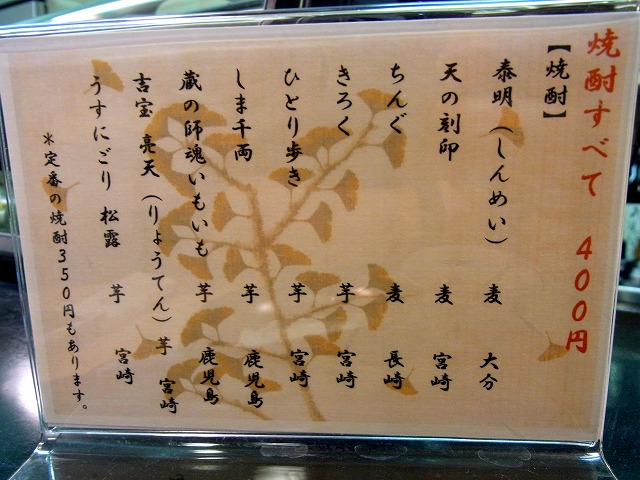 焼酎すべて 400円
【焼酎】
泰明(しんめい) 麦 大分
天の刻印 麦 宮崎
ちんぐ 麦 長崎
きろく 芋 宮崎
ひとり歩き 芋 宮崎
しま千両 芋 鹿児島
蔵の師魂いもいも 芋 鹿児島
吉宝 亮天(りょうてん) 芋 宮崎
うすにごり 松露 芋 宮崎
*定番の焼酎350円もあります。